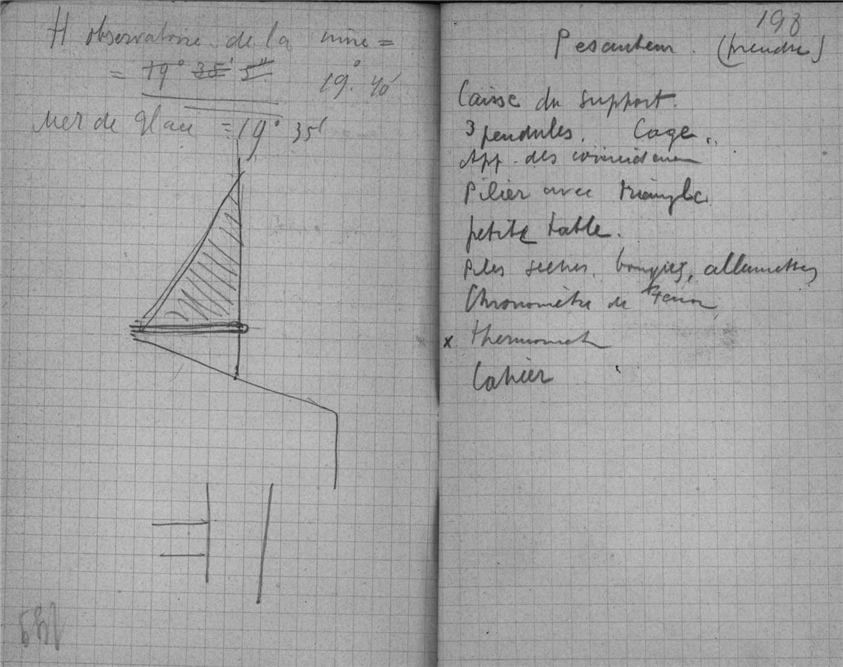 H observatoire de la mine =
= 19° 35' 5" 19° 40'
Mer de Glace = 19° 35'
198
Pesanteur. (prendre)
Caisse du support.
3 pendules. Cage.
App. des coincidences
Pilier avec triangle
petite table.
Piles seches, bougies, allumettes
Chronomètre de
x thermomet
Cahier